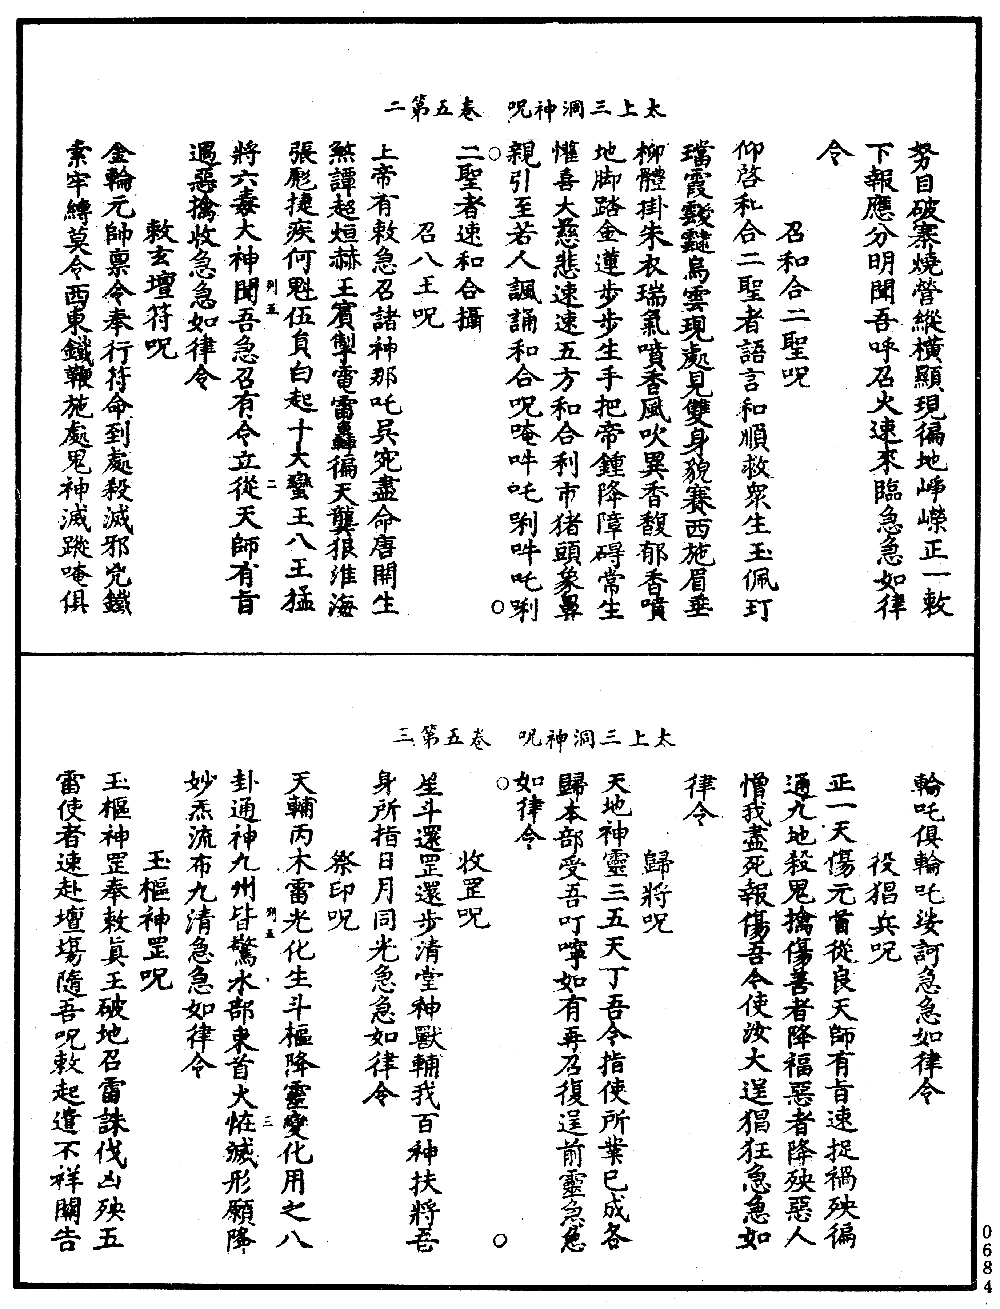 太上三洞神呪　卷五第二
努目破寨燒營縱橫顯現徧地崢嶸正一敕
下報應分明聞吾呼召火速來臨急急如律
令
召和合二聖呪
仰啓和合二聖者語言和順救衆生玉佩玎
璫霞靉靆烏雲現處見雙身貌賽西施眉垂
柳體掛朱衣瑞氣噴香風吹異香馥郁香噴
地脚踏金蓮步步生手把帝鍾降障碍常生
懽喜大慈悲速速五方和合利市猪頭象鼻
親引至若人諷誦和合呪唵吽吒唎吽吒唎
二聖者速和合攝
召八王呪
上帝有敕急召諸神那吒吳究盡命唐開生
煞譚超烜赫王賓掣電雷轟徧天龔狼維海
張彪捷疾何魁伍負白起十大蠻王八王猛
列五　二
將六毒大神聞吾急召有令立從天師有旨
遇惡擒收急急如律令
敕玄壇符呪
金輪元帥稟令奉行符命到處殺滅邪兇鐵
索牢縛莫令西東鐵鞭施處鬼神滅蹤唵俱
太上三洞神呪　卷五第三
輪吒俱輪吒娑訶急急如律令
役猖兵呪
正一天傷元首從良天師有旨速捉禍殃徧
通九地殺鬼擒傷善者降福惡者降殃惡人
憎我盡死報傷吾令使汝大逞猖狂急急如
律令
歸將呪
天地神靈三五天丁吾令指使所業已成各
歸本部受吾叮嚀如有再召復逞前靈急急
如律令
收罡呪
星斗還罡還步清堂神獸輔我百神扶將吾
身所指日月同光急急如律令
祭印呪
天輔丙木雷光化生斗樞降靈變化用之八
列五　三
卦通神九州皆驚水部東首火恠滅形願降
妙炁流布九清急急如律令
玉樞神罡呪
玉樞神罡奉敕眞王破地召雷誅伐凶殃五
雷使者速赴壇塲隨吾呪敕起遣不祥關告
0684